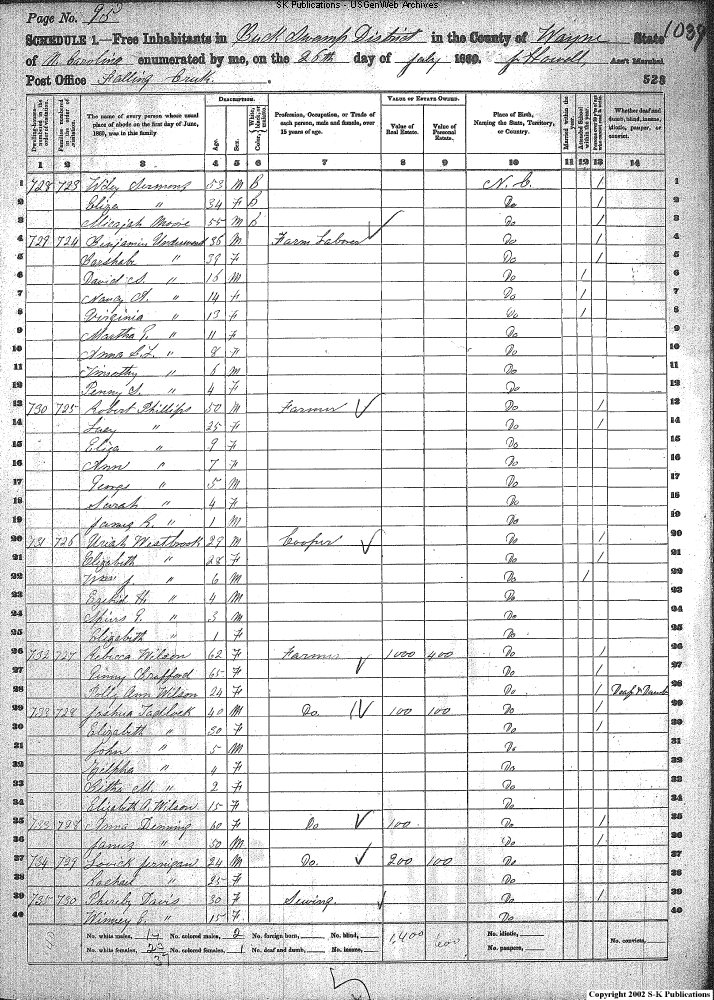 SK Publications - USGenWeb Archives
Page No. 95
1039
SCHEDULE 1.—Free Inhabitants in Buck Swamp District in the County of Wayne State
of N. Carolina enumerated by me, on the 26th day of July 1860. J Howell Ass't Marshal
Post Office Falling Creek. 523
Dwelling-houses numbered in the order of visitation.
Families numbered in the order of visitation.
The name of every person whose usual place of abode on the first day of June, 1860, was in this family
DESCRIPTION.
Age.
Sex.
Color, White, black, or mulatto.
Profession, Occupation, or Trade of each person, male and female, over 15 years of age.
VALUE OF ESTATE OWNED.
Value of Real Estate.
Value of Personal Estate.
Place of Birth, Naming the State, Territory, or Country.
Married within the year.
Attended School within the year.
Whether deaf and dumb, blind, insane, idiotic, pauper, or convict.
1 2 3 4 5 6 7 8 9 10 11 12 13 14
1 728 723 Wiley 53 M B N. C. / 1
2 Eliza " 34 F B Do / 2
3 Micajah Moore 55 M B Do / 3
4 729 724 Benjamin Underwood 36 M Farm Laborer Do / 4
5 " 39 F Do / 5
6 David " 16 M Do / 6
7 Nancy " 14 F Do / 7
8 Virginia " 13 F Do / 8
9 Martha " 11 F Do 9
10 Anna S. L. " 8 F Do 10
11 Timothy " 6 M Do 11
12 Penny " 4 F Do 12
13 730 725 Robert Phillips 50 M Farmer Do / 13
14 Lucy " 35 F Do / 14
15 Eliza " 9 F Do 15
16 Ann " 7 F Do 16
17 George " 5 M Do 17
18 Sarah " 4 F Do 18
19 James R. " 1 M Do 19
20 731 726 Uriah Westbrook 29 M Cooper Do / 20
21 Elizabeth " 28 F Do / 21
22 Wm J. " 6 M Do / 22
23 H. " 4 M Do 23
24 " 3 M Do 24
25 Elizabeth " 1 F Do 25
26 732 727 Rebecca Wilson 62 F Farmer 1000 400 Do / 26
27 65 F Do / 27
28 Polly Ann Wilson 24 F Do / Deaf & Dumb 28
29 733 728 Joshua Tadlock 40 M Do. 100 100 Do / 29
30 Elizabeth " 30 F Do / 30
31 John " 5 M Do 31
32 Zilpha " 4 F Do 32
33 M. " 2 F Do 33
34 Elizabeth A. Wilson 15 F Do 34
35 733 729 Anna Denning 60 F Do 100 Do / 35
36 James " 30 M Do / 36
37 734 729 Lovick Jernigan 24 M Do. 200 100 Do 37
38 Rachael " 25 F Do 38
39 735 730 Phereby Davis 30 F Sewing. Do / 39
40 Winney E. " 15 F Do 40
No. white males, 14 No. colored males, 2 No. foreign born, No. blind, 1,400 600 No. idiotic, No. convicts,
No. white females, 23 No. colored females, 1 No. deaf and dumb, No. insane, No. paupers,
37
Copyright 2002 S-K Publications